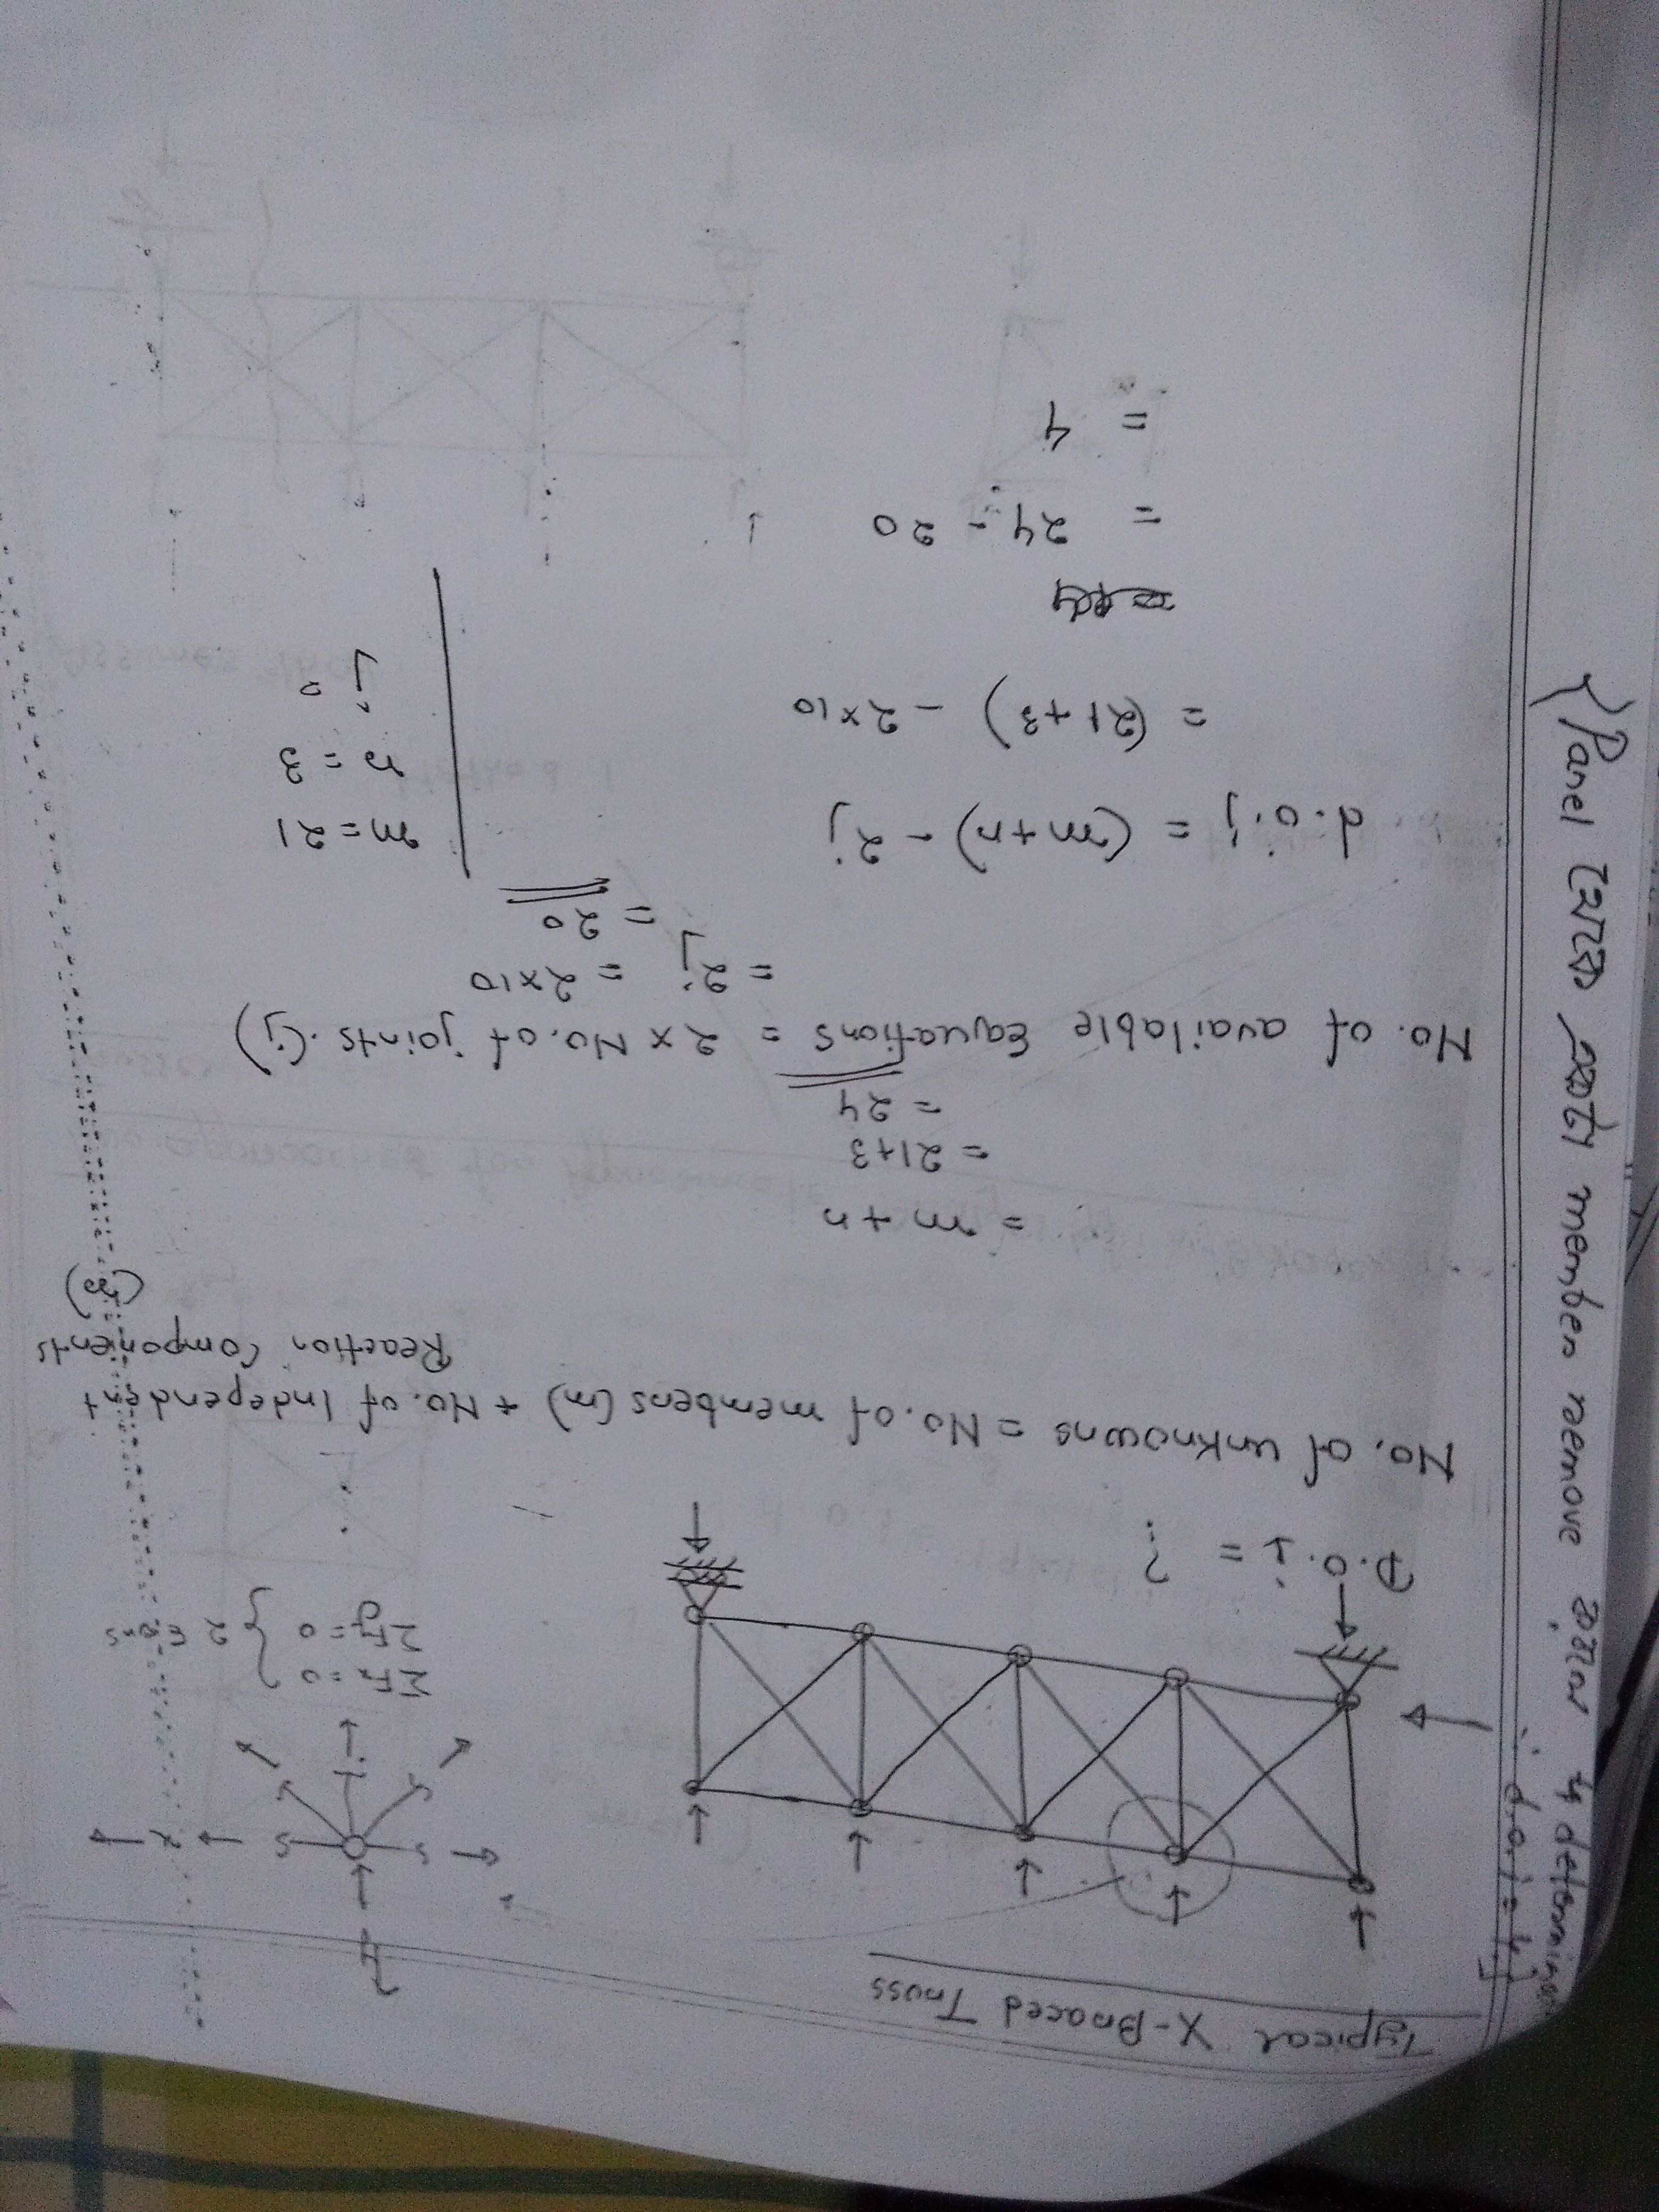 Typical X-Braced Truss
P
x
ΣFx = 0
ΣFy = 0 } 2 Eqns
D.O.I = ?
No. of unknowns = No. of members (m) + No. of Independent
Reaction Components
(r)
= m + r
= 21+3
= 24
No. of available Equations = 2 x No. of joints (j)
= 2j = 2×10
= 20
d.o.i = (m+r) - 2j
m = 21
r = 3
= (21+3) - 2×10
= 24 - 20
= 4
{Panel থেকে একটা member remove করলে
∴ d.o.i = 4}